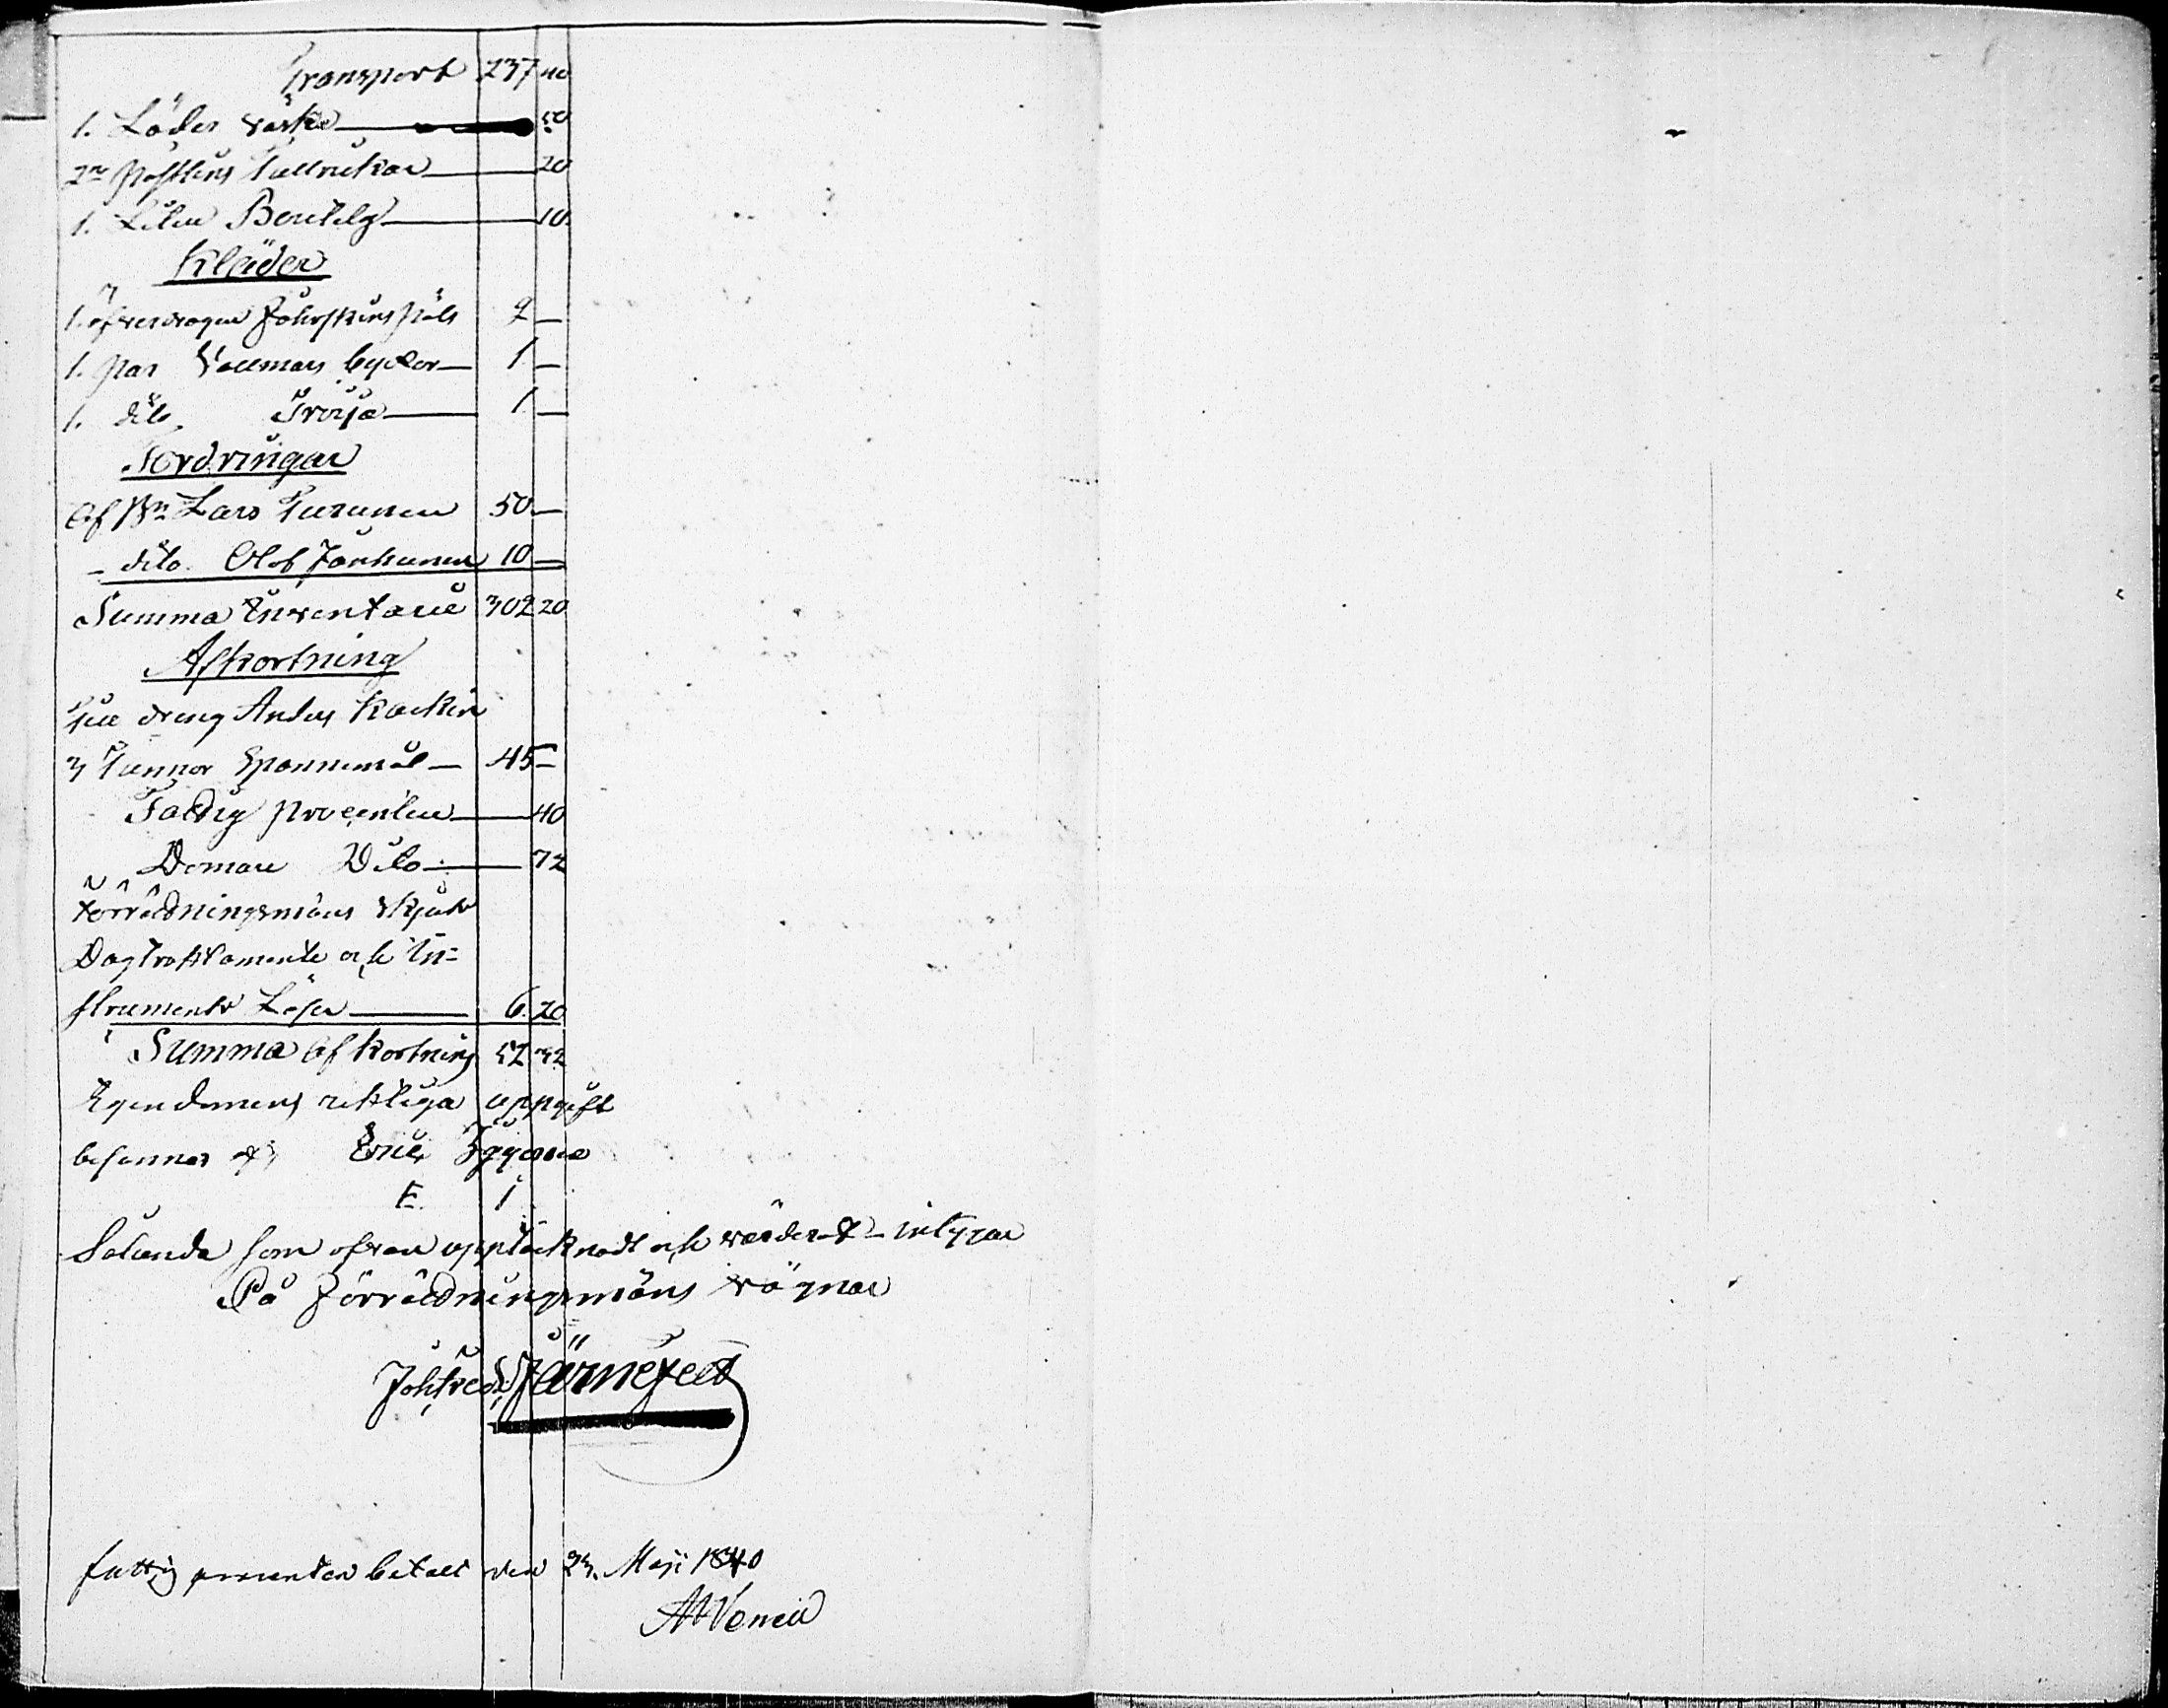 Transport 237 40
1. Läder väska 50
2ne postlins Tallrickar 20
1. Liten Boutelg 10.
Kläder
1. öfverdragen Fåhrskins päls 2 —
1. par Vallmars byxor — 1 —
1. dito. Tröija 1 —
Fordringar
Af Bn Lars Turunen 50 —
— dito. Olof Janhunen 10 —
Summa Inventarie 302 20.
Afkortning
Till dreng Anders
3 Tunnor Spannemål — 45 —
Fattig procenten 40
Domare Dito 72
Förrädningsmäns skjuts
Dagtraktamente och In=
struments Lösen 6. 20
Summa Afkortning 52 32
Egendomens richtiga uppgift
besannar af
E. I
Sålunda som ofvan upptäcknadt och värderat intygar
På Förrädningsmäns vägnar
Joh: Fredr: Järnefelt
fattig procenten betalt den 23. Maji 1840